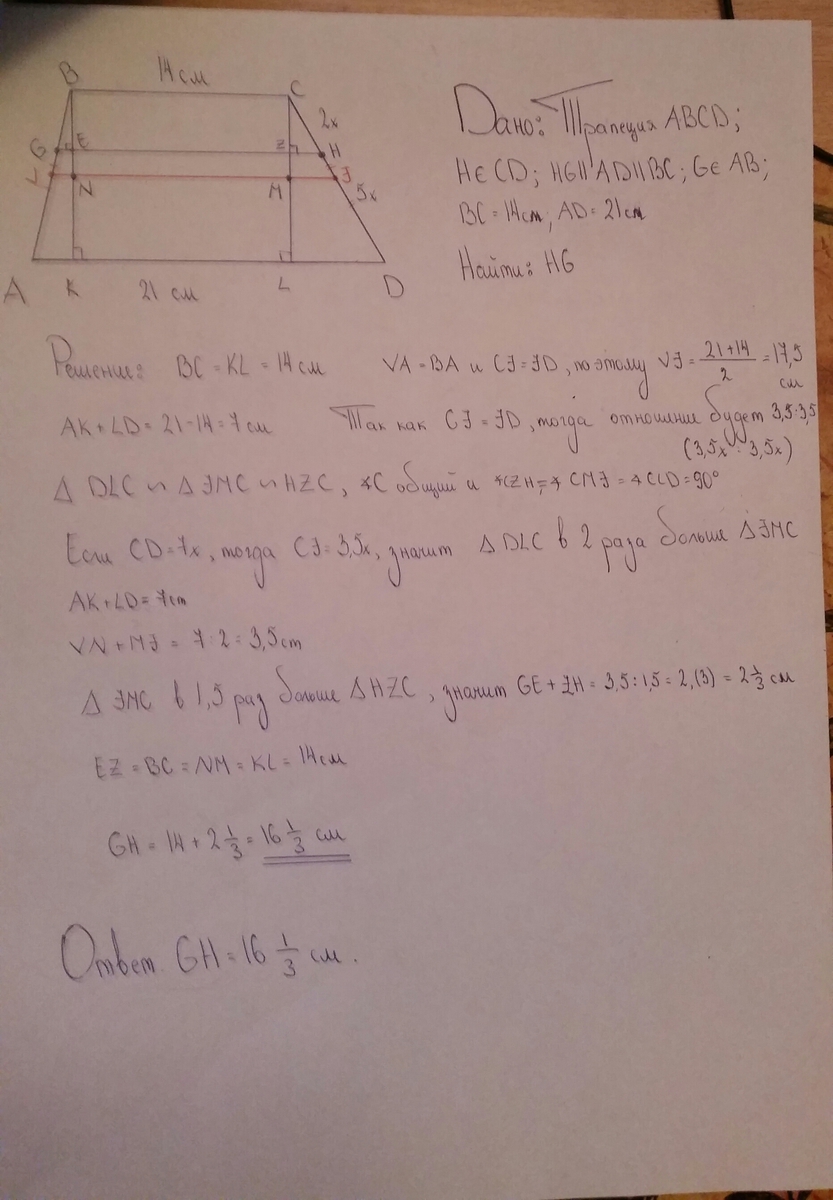 B 14 см C
2x
G E Z H
V N M J
5x
A K 21 см L D
Дано: Трапеция ABCD;
H∈CD; HG∥AD∥BC; G∈AB;
BC = 14см, AD = 21см
Найти: HG
Решение: BC = KL = 14 см VA = BA и CJ = JD, поэтому VJ = (21+14)/2 = 17,5 см
AK+LD = 21-14 = 7 см Так как CJ = JD, тогда отношение будет 3,5:3,5
(3,5x : 3,5x)
Δ DLC ∽ Δ JMC ∽ HZC, ∢C общий и ∢CZH = ∢CMJ = ∢CLD = 90°
Если CD = 7x, тогда CJ = 3,5x, значит Δ DLC в 2 раза больше Δ JMC
AK+LD = 7cm
VN + MJ = 7:2 = 3,5cm
Δ JMC в 1,5 раз больше Δ HZC, значит GE + ZH = 3,5:1,5 = 2,(3) = 2 1/3 см
EZ = BC = NM = KL = 14см
GH = 14 + 2 1/3 = 16 1/3 см
Ответ. GH = 16 1/3 см.